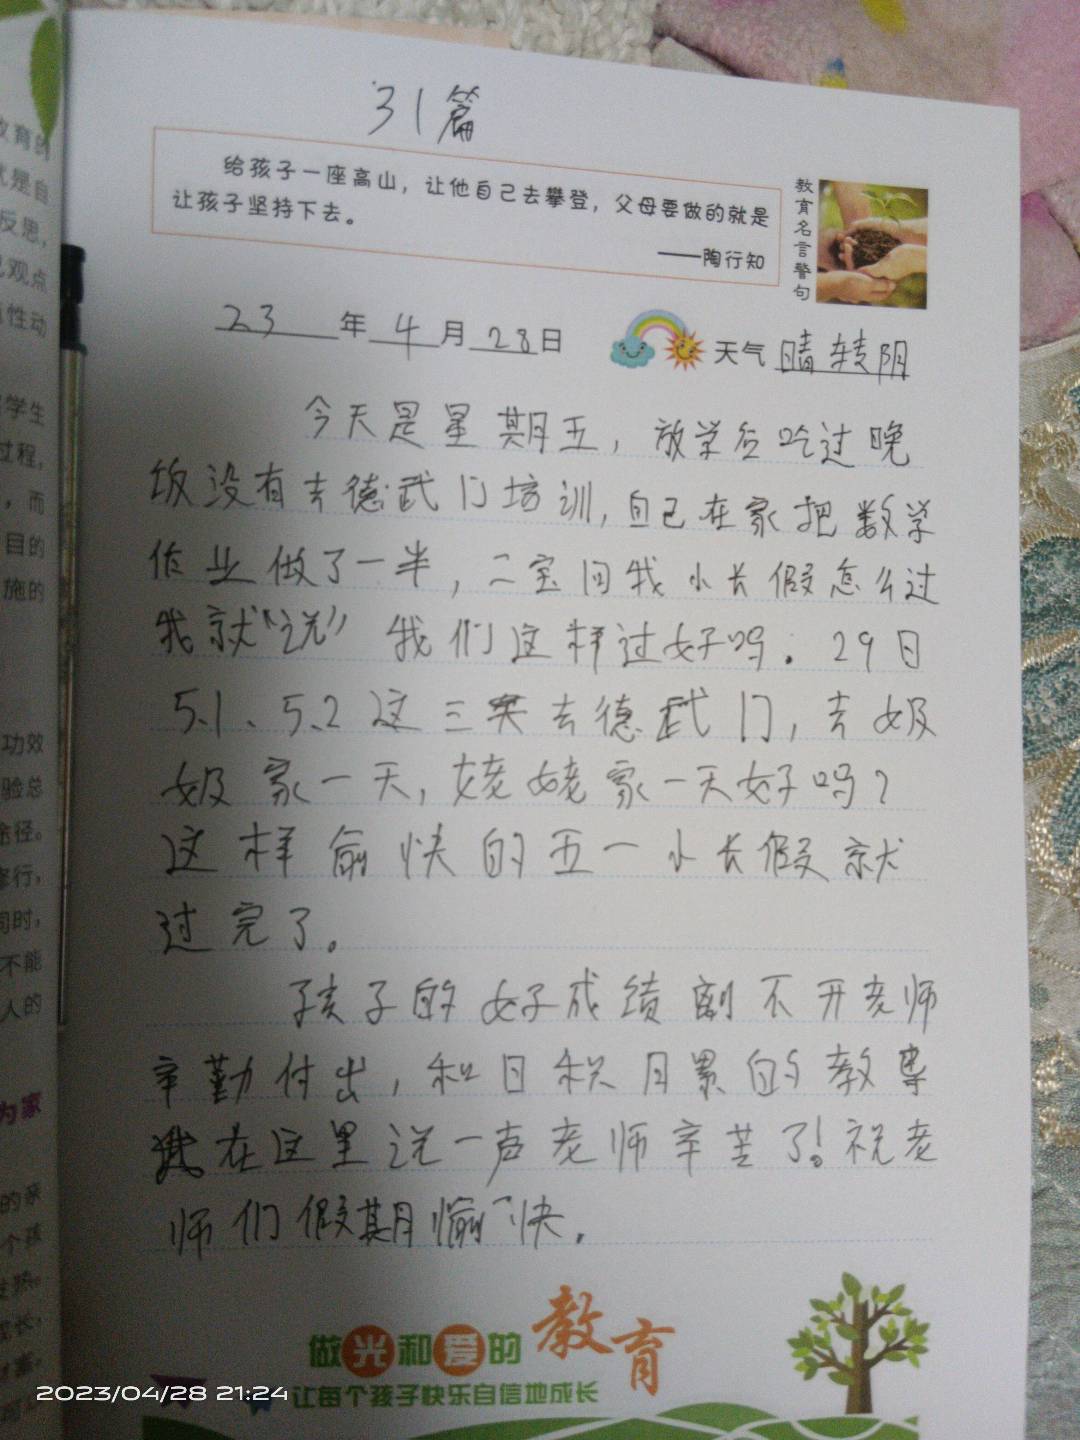 31篇
给孩子一座高山，让他自己去攀登，父母要做的就是
让孩子坚持下去。
——陶行知
教育名言警句
23年4月28日
天气晴转阴
今天是星期五，放学后吃过晚
饭没有去德武门培训，自己在家把数学
作业做了一半，二宝问我小长假怎么过
我就“说” 我们这样过好吗。29日
5.1、5.2这三天去德武门，去奶
奶家一天，姥姥家一天好吗？
这样俞快的五一小长假就
过完了。
孩子的好成绩离不开老师
辛勤付出，和日积月累的教导
我在这里说一声老师辛苦了！祝老
师们假期愉快。
做光和爱的教育
让每个孩子快乐自信地成长
2023/04/28 21:24
教育的
就是自
反思，
观点
性动
学生
过程，
，而
目的
施的
功效
验总
途径。
同时，
不能
人的
为家
的亲
个孩
成长，